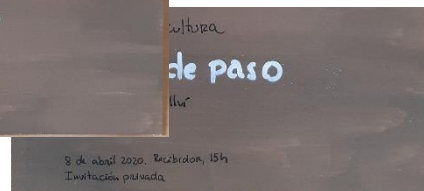 ultura
de paso
8 de abril 2020. Recibidor, 15h
Invitación privada